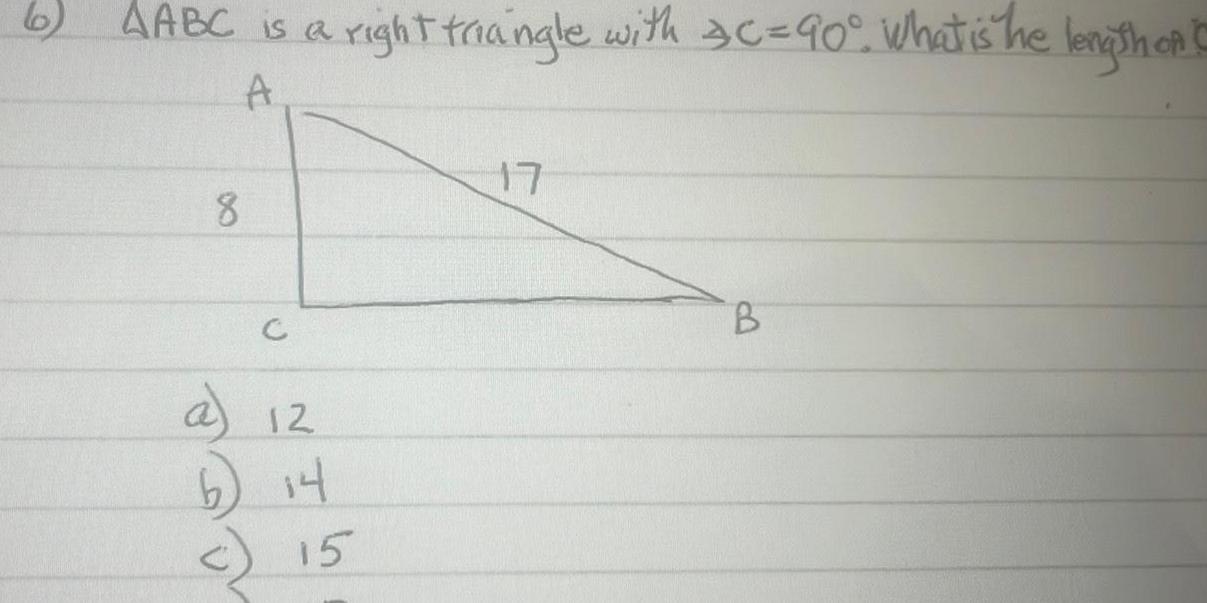 6) ΔABC is a right triangle with ∢C=90°. What is he length on
A
17
8
C
B
a) 12
b) 14
c) 15